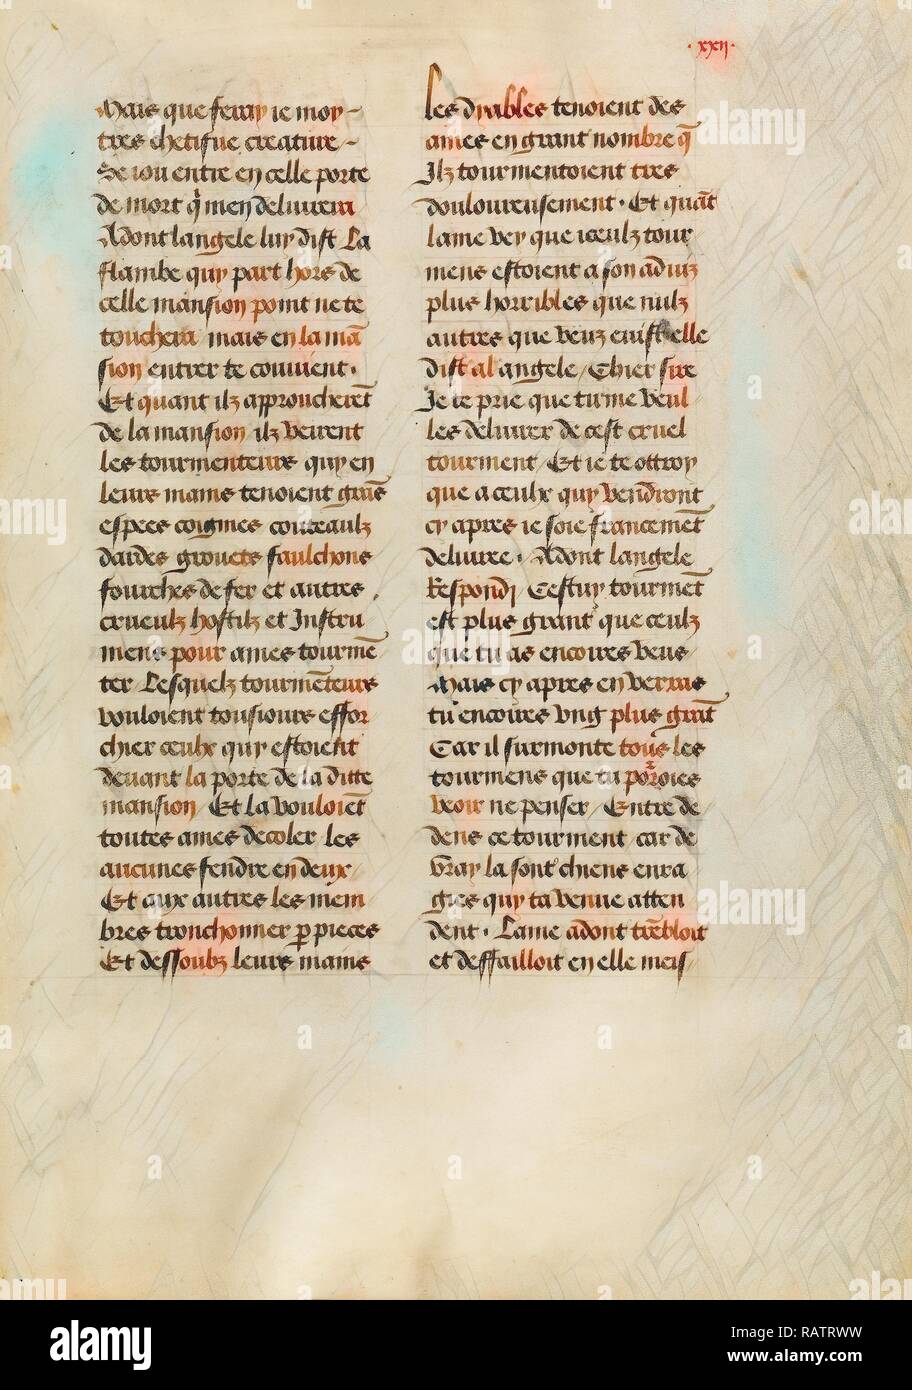 ·xxij·
Mais que feray ie moy
tres chetifue creature
Se iou entre en celle porte
de mort q̄ men deliurera
Adont langele luy dist La
flambe quy part hors de
celle mansion point ne te
touchera mais en la mā
sion entrer te couuient·
Et quant ilz approucherēt
de la mansion ilz veirent
les tourmenteurs quy en
leurs mains tenoient grās
espees coignies couteaulz
dardes grouets faulchons
fourches de fer et autres
crueulz hostilz et Instru
mens pour ames tourmē
ter Lesquelz tourmēteurs
vouloient tousiours effor
chier ceulx quy estoient
deuant la porte de la ditte
mansion Et la vouloiēt
toutes ames decoler les
aucunes fendre en deux
Et aux autres les mem
bres tronchonner p̱ pieces
Et dessoubz leurs mains
les dyables tenoient des
ames en grant nombre q̄
Ilz tourmentoient tres
douloureusement· Et quāt
lame vey que iceulz tour
mens estoient a son aduiz
plus horribles que nulz
autres que veuz euist elle
dist al angele / Chier sire
Je te prie que tu me veul
les deliurer de cest cruel
tourment / Et ie te ottroy
que a ceulx quy vendront
cy apres ie soie francemēt
deliuree· Adont langele
Respondj / Cestuy tourmēt
est plus grant que ceulz
que tu as encoires veus
Mais cy apres en verras
tu encoires vng plus grāt
Car il surmonte to9 les
tourmens que tu porroies
veoir ne penser / Entre de
dens ce tourment car de
vray la sont chiens enra
gies quy ta venue atten
dent· Lame adont trēbloit
et deffailloit en elle meis
alamy
alamy
Image ID: RATRWW
www.alamy.com